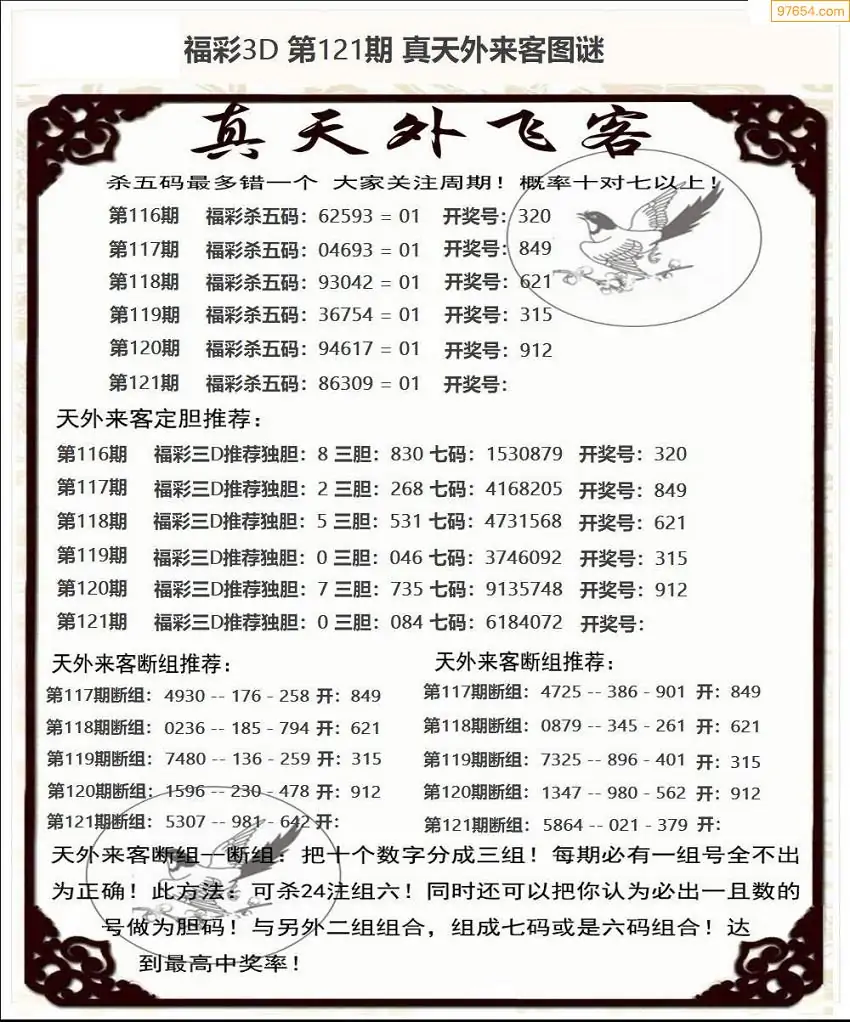 97654.com
福彩3D 第121期 真天外来客图谜
真天外飞客
杀五码最多错一个 大家关注周期！概率十对七以上！
第116期 福彩杀五码：62593 = 01 开奖号：320
第117期 福彩杀五码：04693 = 01 开奖号：849
第118期 福彩杀五码：93042 = 01 开奖号：621
第119期 福彩杀五码：36754 = 01 开奖号：315
第120期 福彩杀五码：94617 = 01 开奖号：912
第121期 福彩杀五码：86309 = 01 开奖号：
天外来客定胆推荐：
第116期 福彩三D推荐独胆：8 三胆：830 七码：1530879 开奖号：320
第117期 福彩三D推荐独胆：2 三胆：268 七码：4168205 开奖号：849
第118期 福彩三D推荐独胆：5 三胆：531 七码：4731568 开奖号：621
第119期 福彩三D推荐独胆：0 三胆：046 七码：3746092 开奖号：315
第120期 福彩三D推荐独胆：7 三胆：735 七码：9135748 开奖号：912
第121期 福彩三D推荐独胆：0 三胆：084 七码：6184072 开奖号：
天外来客断组推荐：
第117期断组：4930 -- 176 - 258 开：849
第118期断组：0236 -- 185 - 794 开：621
第119期断组：7480 -- 136 - 259 开：315
第120期断组：1596 -- 230 - 478 开：912
第121期断组：5307 -- 981 - 642 开：
天外来客断组推荐：
第117期断组：4725 -- 386 - 901 开：849
第118期断组：0879 -- 345 - 261 开：621
第119期断组：7325 -- 896 - 401 开：315
第120期断组：1347 -- 980 - 562 开：912
第121期断组：5864 -- 021 - 379 开：
天外来客断组一断组：把十个数字分成三组！每期必有一组号全不出
为正确！此方法：可杀24注组六！同时还可以把你认为必出一且数的
号做为胆码！与另外二组组合，组成七码或是六码组合！达
到最高中奖率！